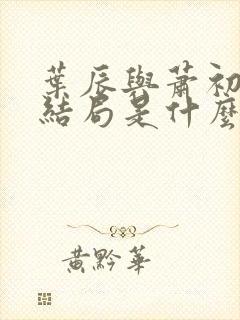 葉辰與蕭初
結局是什麼
黃黔華